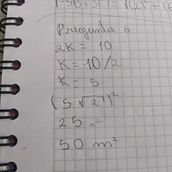 Pregunta 6
2K = 10
K = 10/2
K = 5
(5√2)²
25 .
50 m²